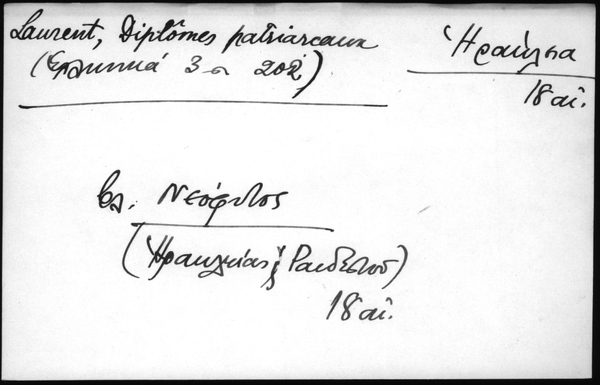 Laurent, Diplômes patriarcaux
(Ἑλληνικά 3 σ 202)
Ἡράκλεια
18 αἰ.
βλ. Νεόφυτος
(Ἡρακλείας ϗ Ραιδεστοῦ)
18 αἰ.